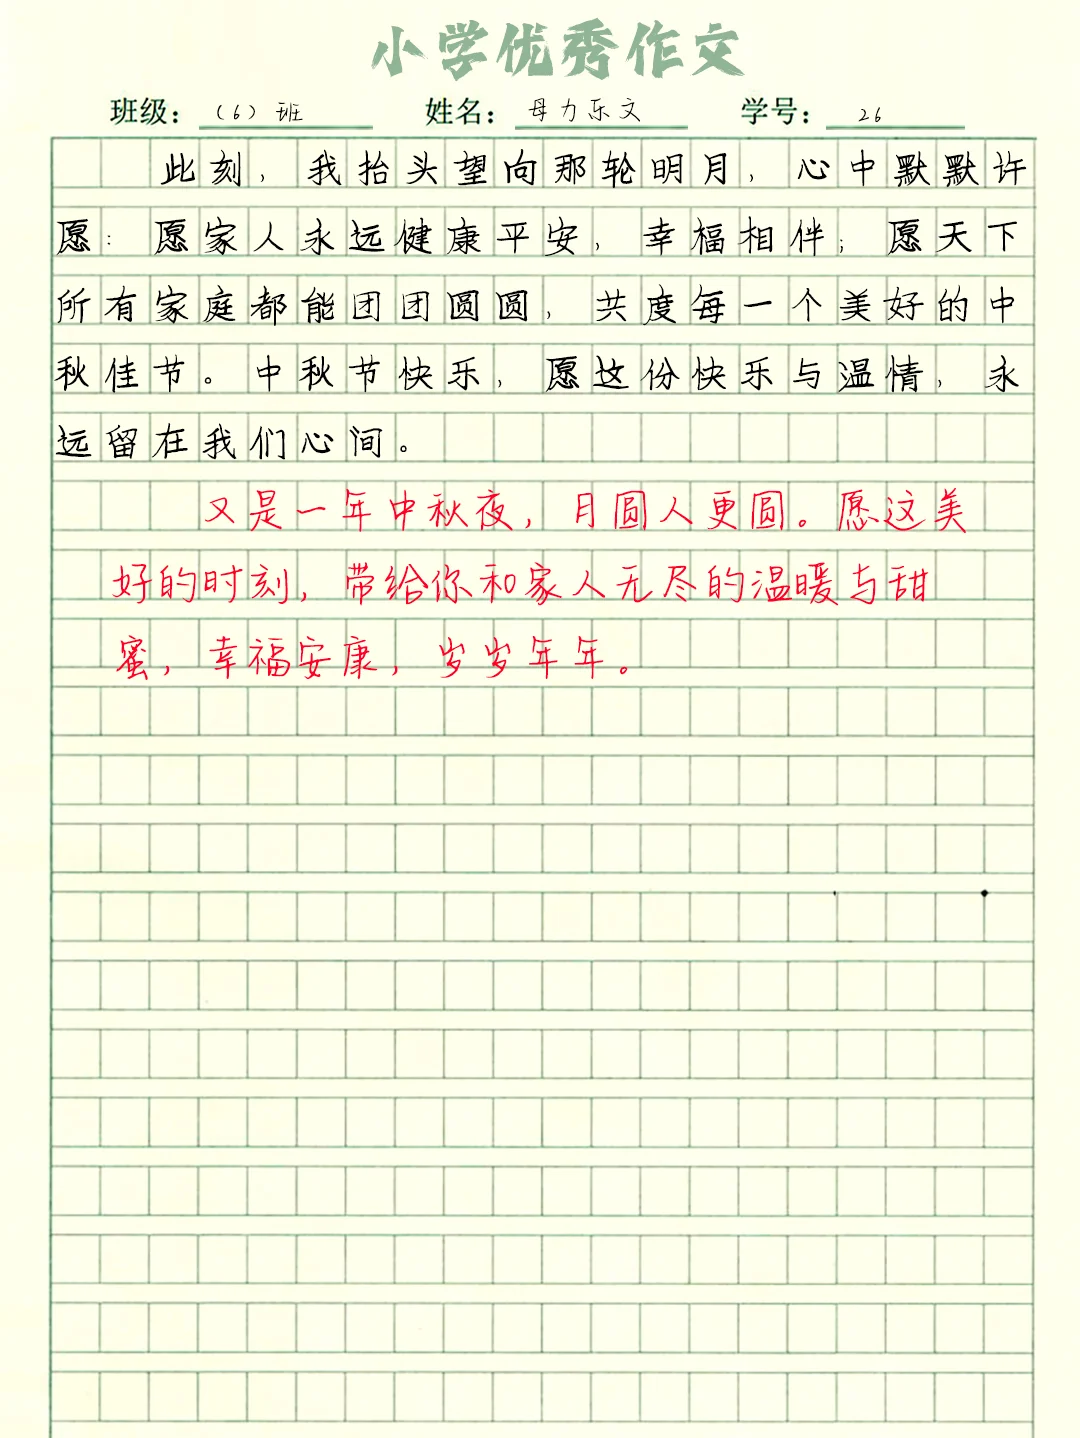 小学优秀作文
班级：（6）班 姓名：母力乐文 学号：26
此刻，我抬头望向那轮明月，心中默默许
愿：愿家人永远健康平安，幸福相伴；愿天下
所有家庭都能团团圆圆，共度每一个美好的中
秋佳节。中秋节快乐，愿这份快乐与温情，永
远留在我们心间。
又是一年中秋夜，月圆人更圆。愿这美
好的时刻，带给你和家人无尽的温暖与甜
蜜，幸福安康，岁岁年年。